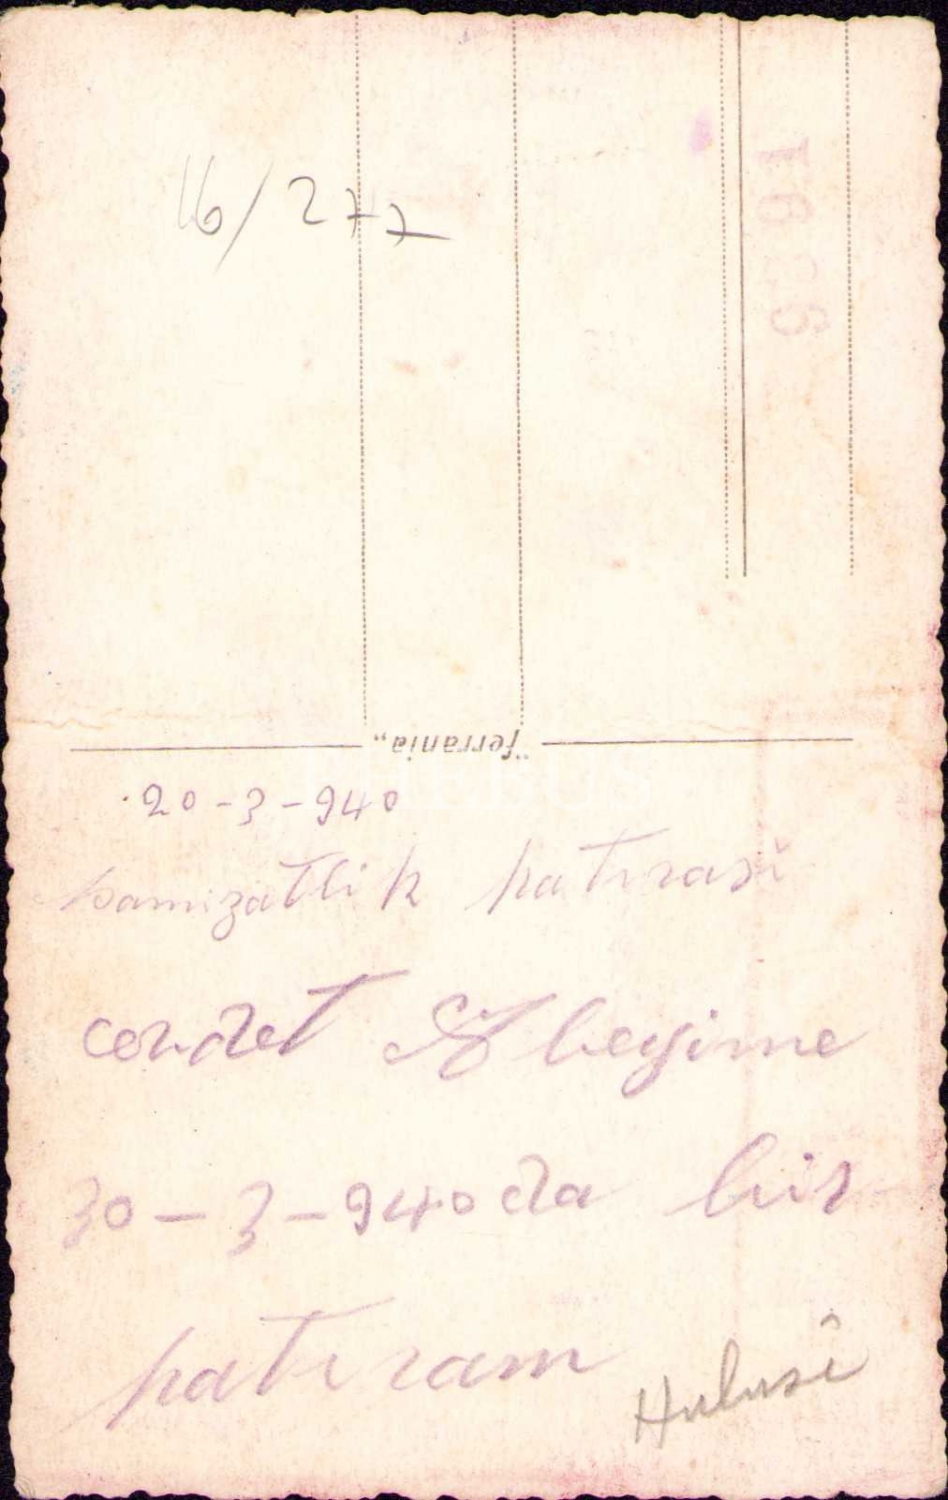 16/277
1663
"ferrania„
20-3-940
samizatlik hatırasi
cevdet Ağbeyime
30-3-940 da bir
hatıram
Hulusî